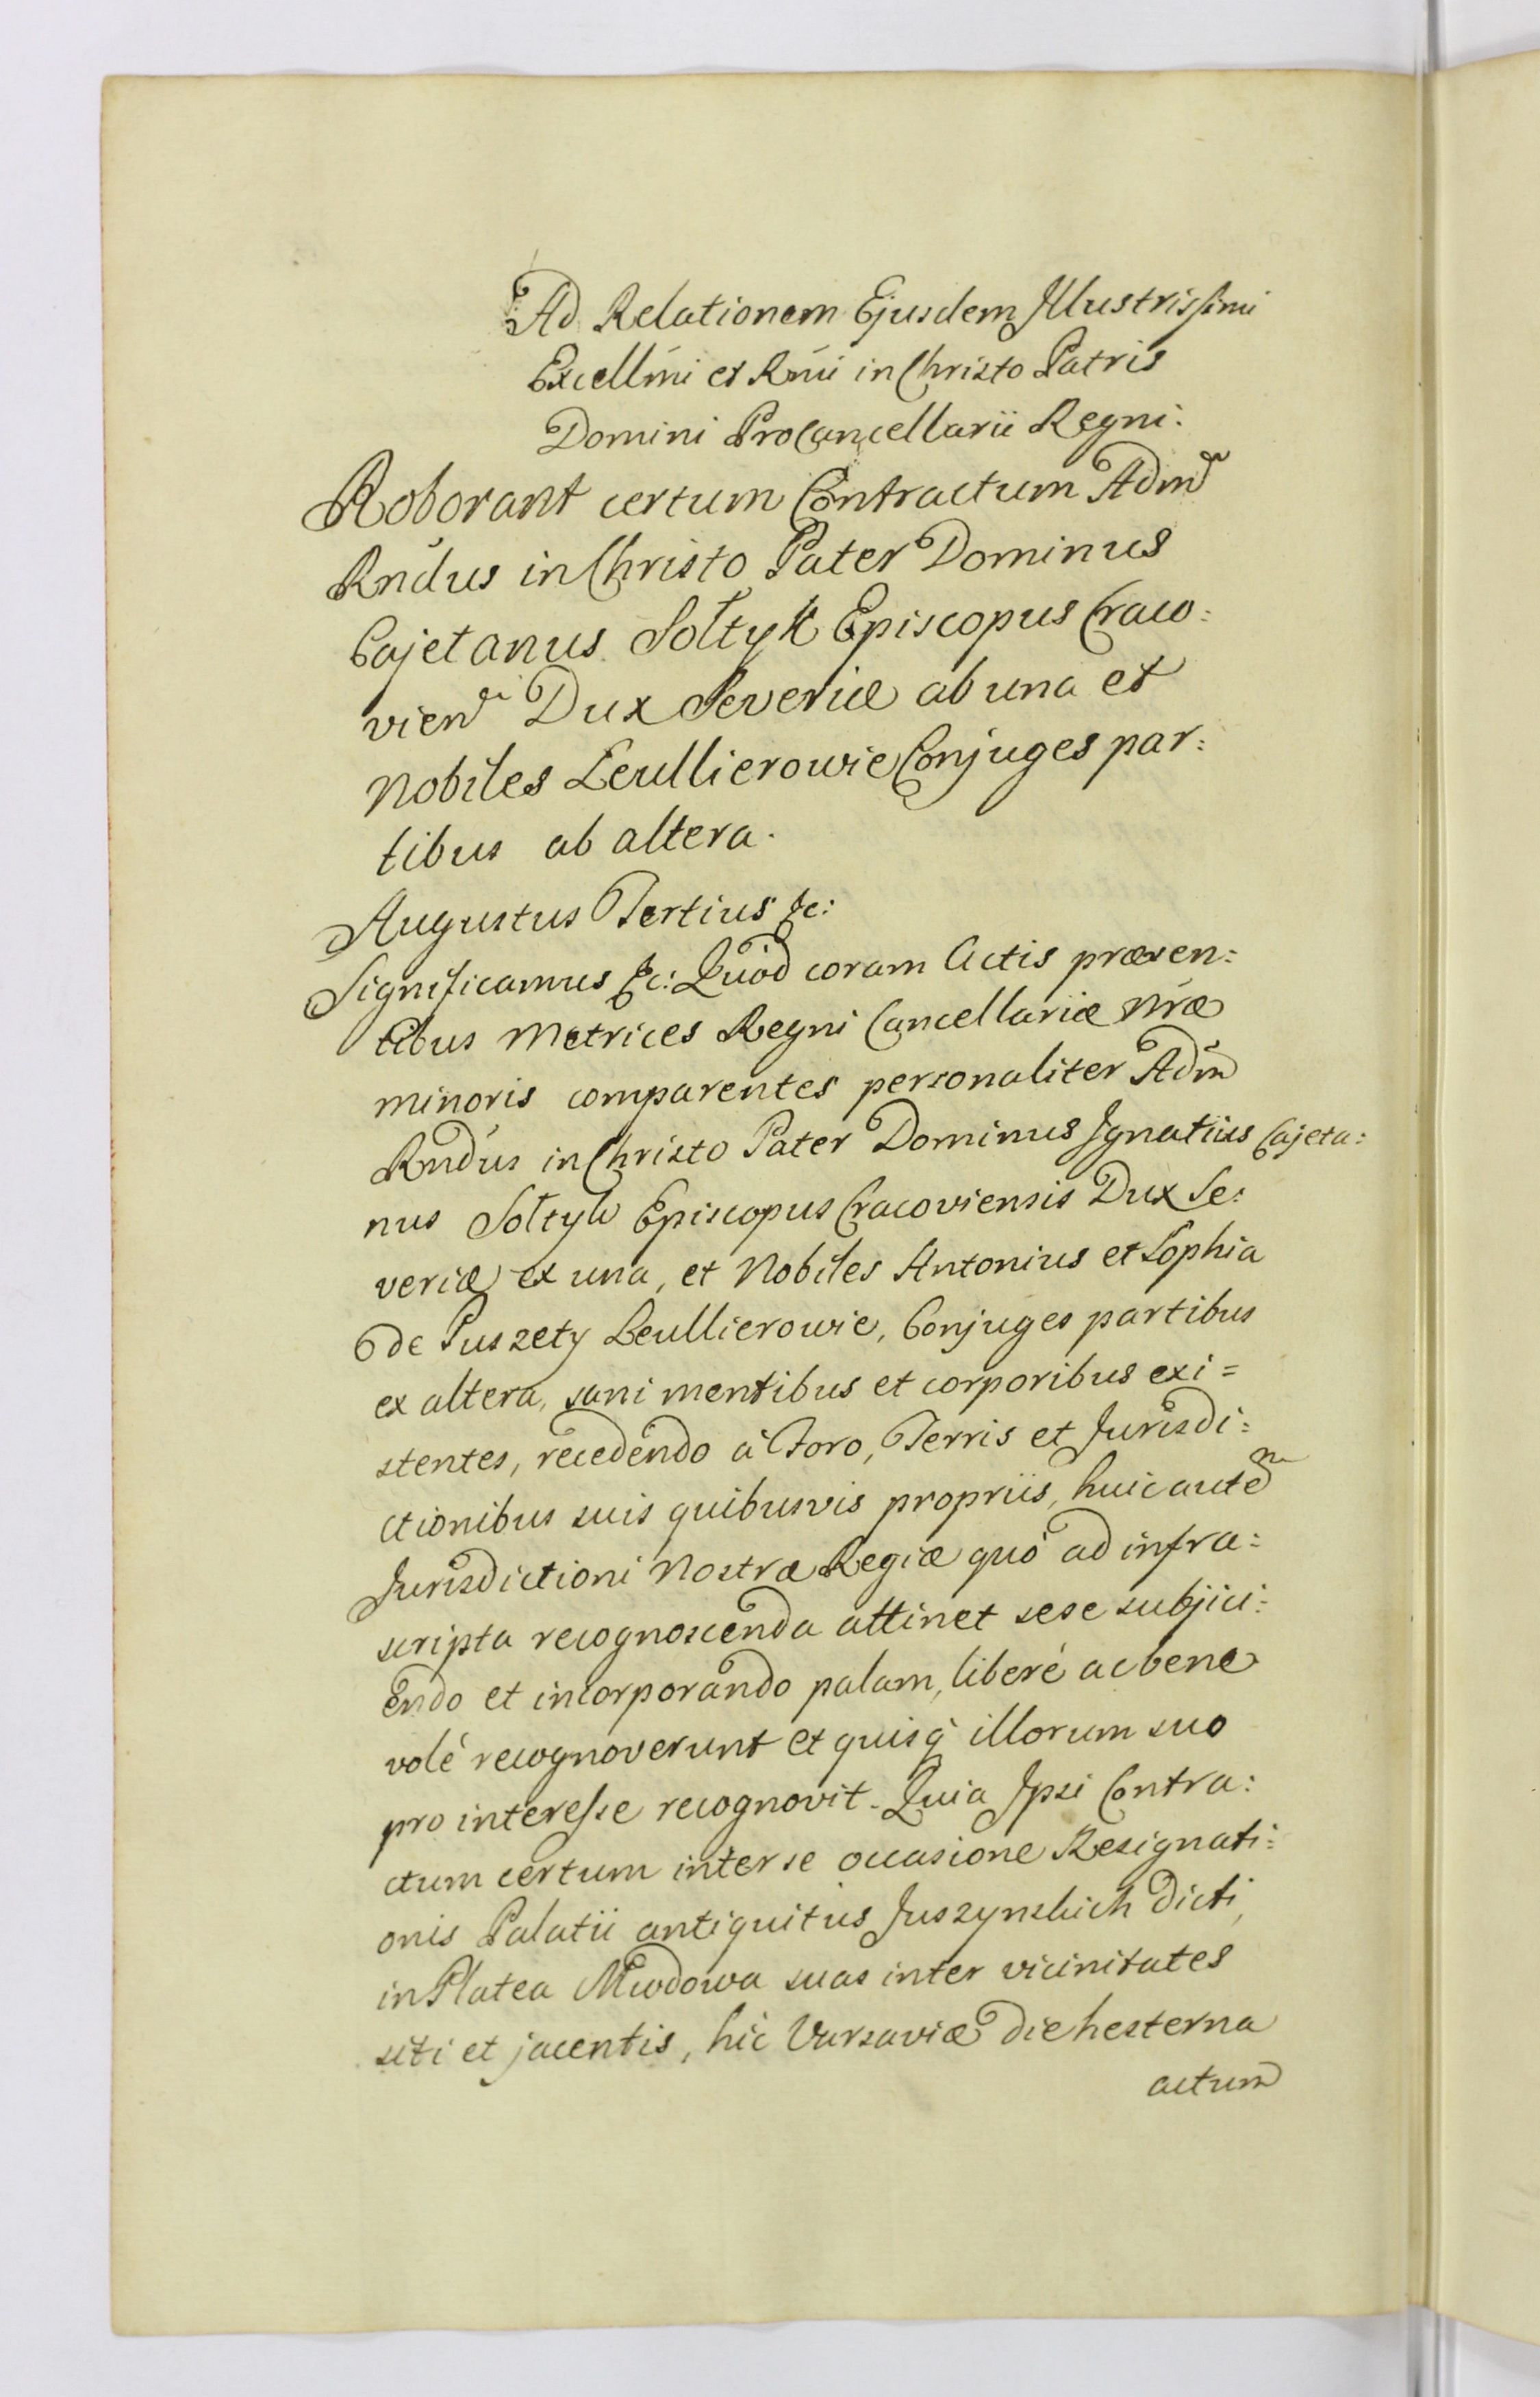 Ad Relationem Ejusdem Illustrissimi
Excellm̃i et Rm̃i in Christo Patris
Domini ProCancellarii Regni.
Roborant certum Contractum Adm̃
Rnd̃us in Christo Pater Dominus
Cajetanus Sołtyk Episcopus Craco:
vien̄ Dux Severiæ ab una et
Nobiles Leullierowie Conjuges par:
tibus ab altera.
Augustus Tertius &c:
Significamus &c: Quod coram Actis præsen:
tibus Metrices Regni Cancellariæ Nr̃æ
minoris comparentes personaliter Adm̃
Rnd̃us in Christo Pater Dominus Ignatius Cajeta:
nus Sołtyk Episcopus Cracoviensis Dux Se:
veriæ ex una, et Nobiles Antonius et Sophia
de Puszety Leullierowie, Conjuges partibus
ex altera, sani mentibus et corporibus exi=
stentes, recedendo à Foro, Terris et Jurisdi:
ctionibus suis quibusvis propriis, huic autem
Jurisdictioni Nostræ Regiæ quò ad infra:
scripta recognoscenda attinet sese subjici:
endo et incorporando palam, liberé ac bene
volé recognoverunt et quisq̃ illorum suo
pro interesse recognovit. Quia Ipsi Contra:
ctum certum inter se occasione Resignati:
onis Palatii antiquitùs Juszynskich dicti,
in Platea Miodowa suas inter vicinitates
siti et jacentis, hìc Varsaviæ die hesterna
actum